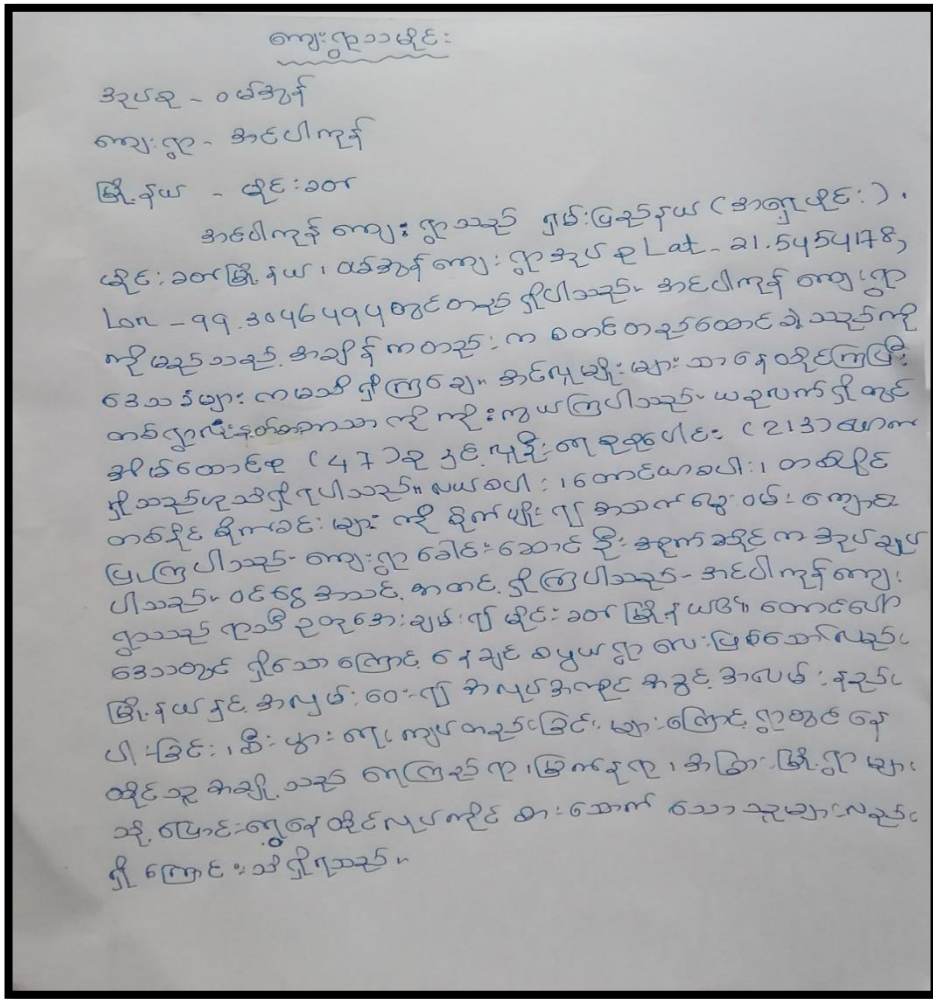 ကျေးရွာသမိုင်း
အုပ်စု - ဝမ်အွန်
ကျေးရွာ - အင်ပါကုန်
မြို့နယ် - မိုင်းခတ်
အင်ပါကုန် ကျေးရွာသည် ရှမ်းပြည်နယ် (အရှေ့ပိုင်း)၊
မိုင်းခတ်မြို့နယ်၊ ဝမ်အွန်ကျေးရွာအုပ်စု Lat - 21.5454178,
Lon - 99.3046494 တွင်တည်ရှိပါသည်။ အင်ပါကုန် ကျေးရွာ
ကိုမည်သည့်အချိန်ကတည်းက စတင်တည်ထောင်ခဲ့သည်ကို
ဒေသခံများကမသိရှိကြချေ။ အင်လူမျိုးများသာနေထိုင်ကြပြီး
တစ်ရွာလုံးနတ်ဘာသာကိုကိုးကွယ်ကြပါသည်။ ယခုလက်ရှိတွင်
အိမ်ထောင်စု (47) စုနှင့် လူဦးရေစုစုပေါင်း (213) ယောက်
ရှိသည်ဟုသိရှိရပါသည်။ လယ်စပါး၊ တောင်ယာစပါး၊ တစ်ပိုင်
တစ်နိုင်စိုက်ခင်းများကို စိုက်ပျိုး၍ အသက်မွေးဝမ်းကျောင်း
ပြုကြပါသည်။ ကျေးရွာခေါင်းဆောင်ဦးအိုက်ခိုင်ကအုပ်ချုပ်
ပါသည်။ ဝင်ငွေအသင့်အတင့်ရှိကြပါသည်။ အင်ပါကုန်ကျေး
ရွာသည် ရာသီဥတုအေးချမ်း၍ မိုင်းခတ်မြို့နယ်၏ တောင်ပေါ်
ဒေသတွင် ရှိသောကြောင့် နေချင်စဖွယ်ရွာလေးဖြစ်သော်လည်း
မြို့နယ်နှင့် အလှမ်းဝေး၍ အလုပ်အကိုင်အခွင့်အလမ်းနည်း
ပါးခြင်း၊ စီးပွားရေးကျပ်တည်းခြင်းများကြောင့် ရွာတွင်နေ
ထိုင်သူအချို့သည် ရေကြည်ရာ၊ မြက်နုရာ၊ အခြားမြို့ရွာများ
သို့ပြောင်းရွှေ့နေထိုင်လုပ်ကိုင်စားသောက်သောသူများလည်း
ရှိကြောင်းသိရှိရသည်။